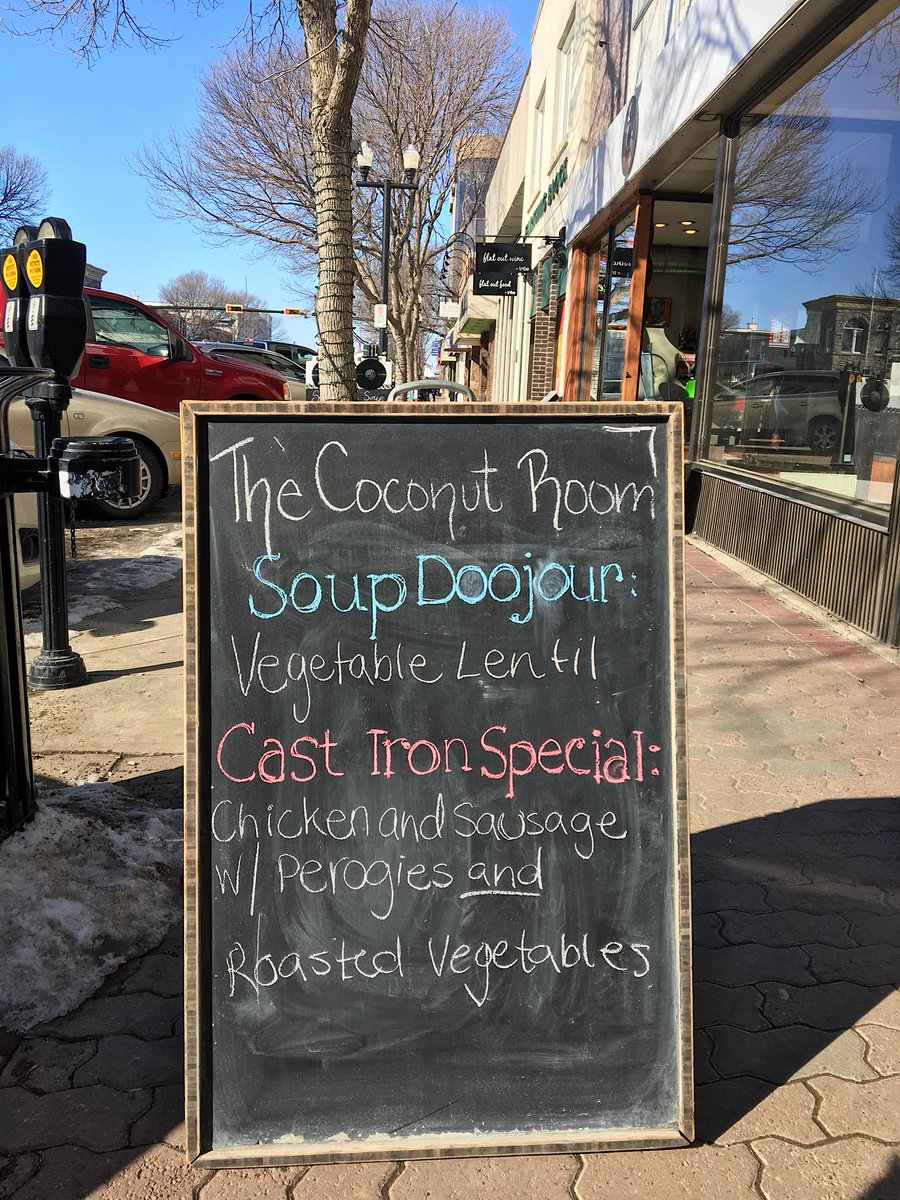 flat out wine
flat out food
The Coconut Room
Soup Doojour:
Vegetable Lentil
Cast Iron Special:
Chicken and Sausage
w/ Perogies and
Roasted Vegetables